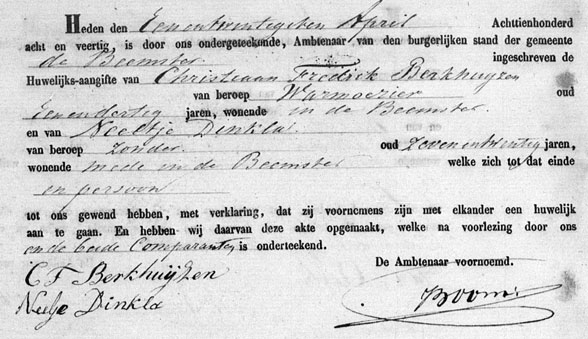 Heden den Eenentwintigsten April Achttienhonderd
acht en veertig, is door ons ondergeteekende, Ambtenaar van den burgerlijken stand der gemeente
de Beemster ingeschreven de
Huwelijks-aangifte van Christiaan Fredrick Berkhuijzen
van beroep Warmoezier oud
Eenendertig jaren, wonende in de Beemster
en van Neeltje Dinkla
van beroep Zonder oud Zevenentwintig jaren,
wonende mede in de Beemster welke zich tot dat einde
in persoon
tot ons gewend hebben, met verklaring, dat zij voornemens zijn met elkander een huwelijk
aan te gaan. En hebben wij daarvan deze akte opgemaakt, welke na voorlezing door ons
en de beide Comparanten is onderteekend.
De Ambtenaar voornoemd.
C F Berkhuijzen
Neeltje Dinkla
Boom